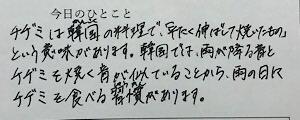 今日のひとこと
チヂミは韓国の料理で、平たく伸ばして焼いたもの
という意味があります。韓国では、雨が降る音と
チヂミを焼く音が似ていることから、雨の日に
チヂミを食べる習慣があります。